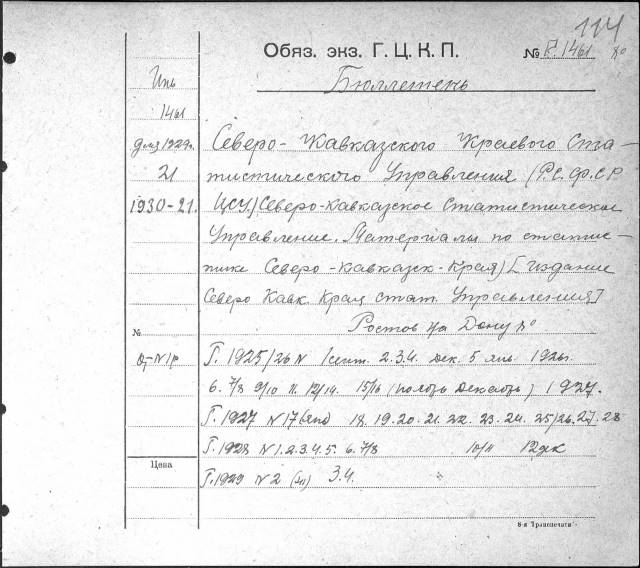 114
Обяз. экз. Г. Ц. К. П. № Р. 1461
Бюллетень
Инь
1461
для 1929г.
21
1930-21.
Северо-Кавказского Краевого Ста-
тистического Управления (Р.С.Ф.С.Р
ЦСУ.) Северо-Кавказское Статистическое
Управление. Материалы по статис-
тике Северо-Кавказск-Края) [Издание
Северо Кавк. Край стат. Управления]
Ростов на Дону 8°
№
От №1р
Г. 1925/26 N 1сент. 2.3.4. дек. 5 янв. 1926г.
6. 7/8 9/10 11. 12/14. 15/16 (ноябрь декабрь) 1927.
Г. 1927 N 17 18. 19. 20. 21. 22. 23. 24. 25/26. 27. 28
Г. 1928 N 1. 2. 3. 4. 5. 6. 7/8 10/11 12 дек
Цена
Г. 1929 N 2 3. 4.
8-я "Транспечати"